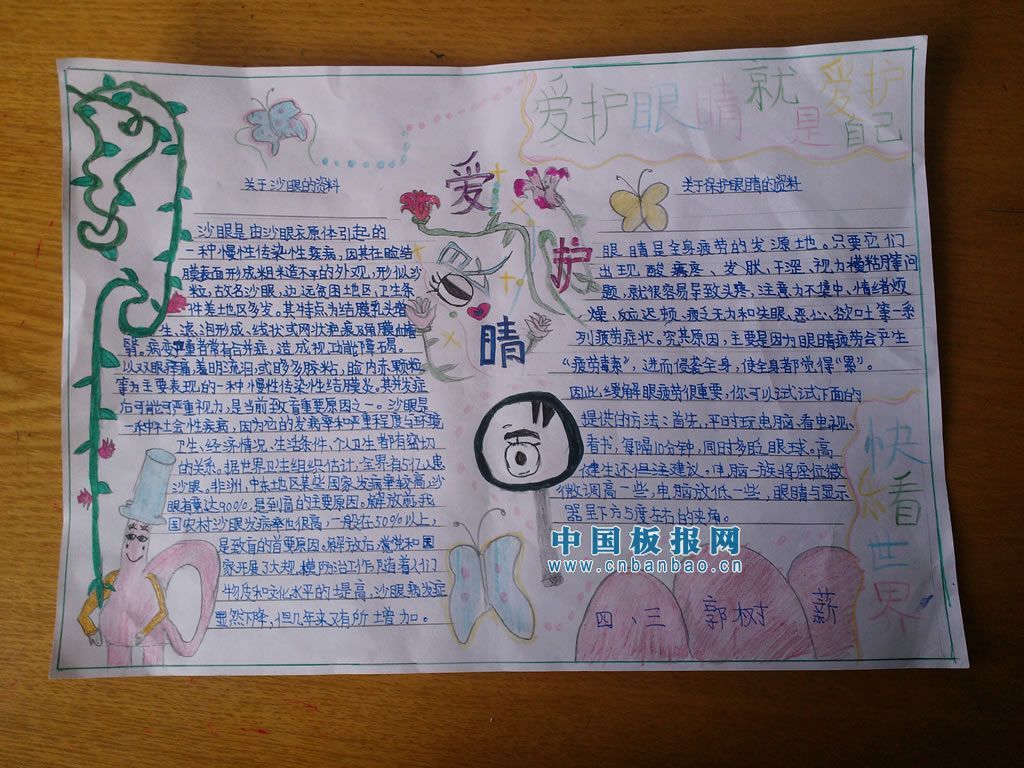 爱护眼睛就是爱护自己
爱护眼睛
关于沙眼的资料
沙眼是由沙眼衣原体引起的
一种慢性传染性疾病,因其在睑结
膜表面形成粗糙不平的外观,形似沙
粒,故名沙眼,边远贫困地区,卫生条
件差地区多发。其特点为结膜乳头增
生、滤泡形成、线状或网状疤痕及角膜血管
翳。病变严重者常有合并症,造成视功能障碍。
以双眼疼痛,羞明流泪,或眵多胶粘,睑内赤颗粒
等为主要表现的一种慢性传染性结膜炎。其并发症
后可能可严重视力,是当前致盲重要原因之一。沙眼是
一种社会性疾病,因为它的发病率和严重程度与环境
卫生、经济情况、生活条件、个人卫生都有密切
的关系。据世界卫生组织估计,全界有5亿人患
沙眼。非洲、中东地区某些国家发病率较高,沙
眼有靠达90%,是到盲的主要原因。解放前,我
国农村沙眼发病率也很高,一般在50%以上,
是致盲的首要原因。解放后,党和国
家开展了大规模防治工作,随着人们
物质和文化水平的提高,沙眼病发症
显然下降,但几年来又有所增加。
关于保护眼睛的资料
眼睛是全身疲劳的发源地。只要它们
出现酸、发胀,干涩、视力模糊等问
题,就很容易导致头疼,注意力不集中、情绪烦
燥、反应迟顿、疲乏无力和失眠、恶心、欲呕吐等一系
列疲劳症状。究其原因,主要是因为眼睛疲劳会产生
“疲劳毒素”,进而侵袭全身,使全身都觉得“累”。
因此,缓解眼疲劳很重要,你可以试试下面的
提供的方法:首先,平时玩电脑、看电视、
看书,每隔10分钟,同时多眨眼球。高
健生还但注建议,电脑一族将座位微
微调高一些,电脑放低一些,眼睛与显示
器呈下方5度左右的夹角。
快乐看世界
四、三 郭树薪
中国板报网
www.cnbanbao.cn